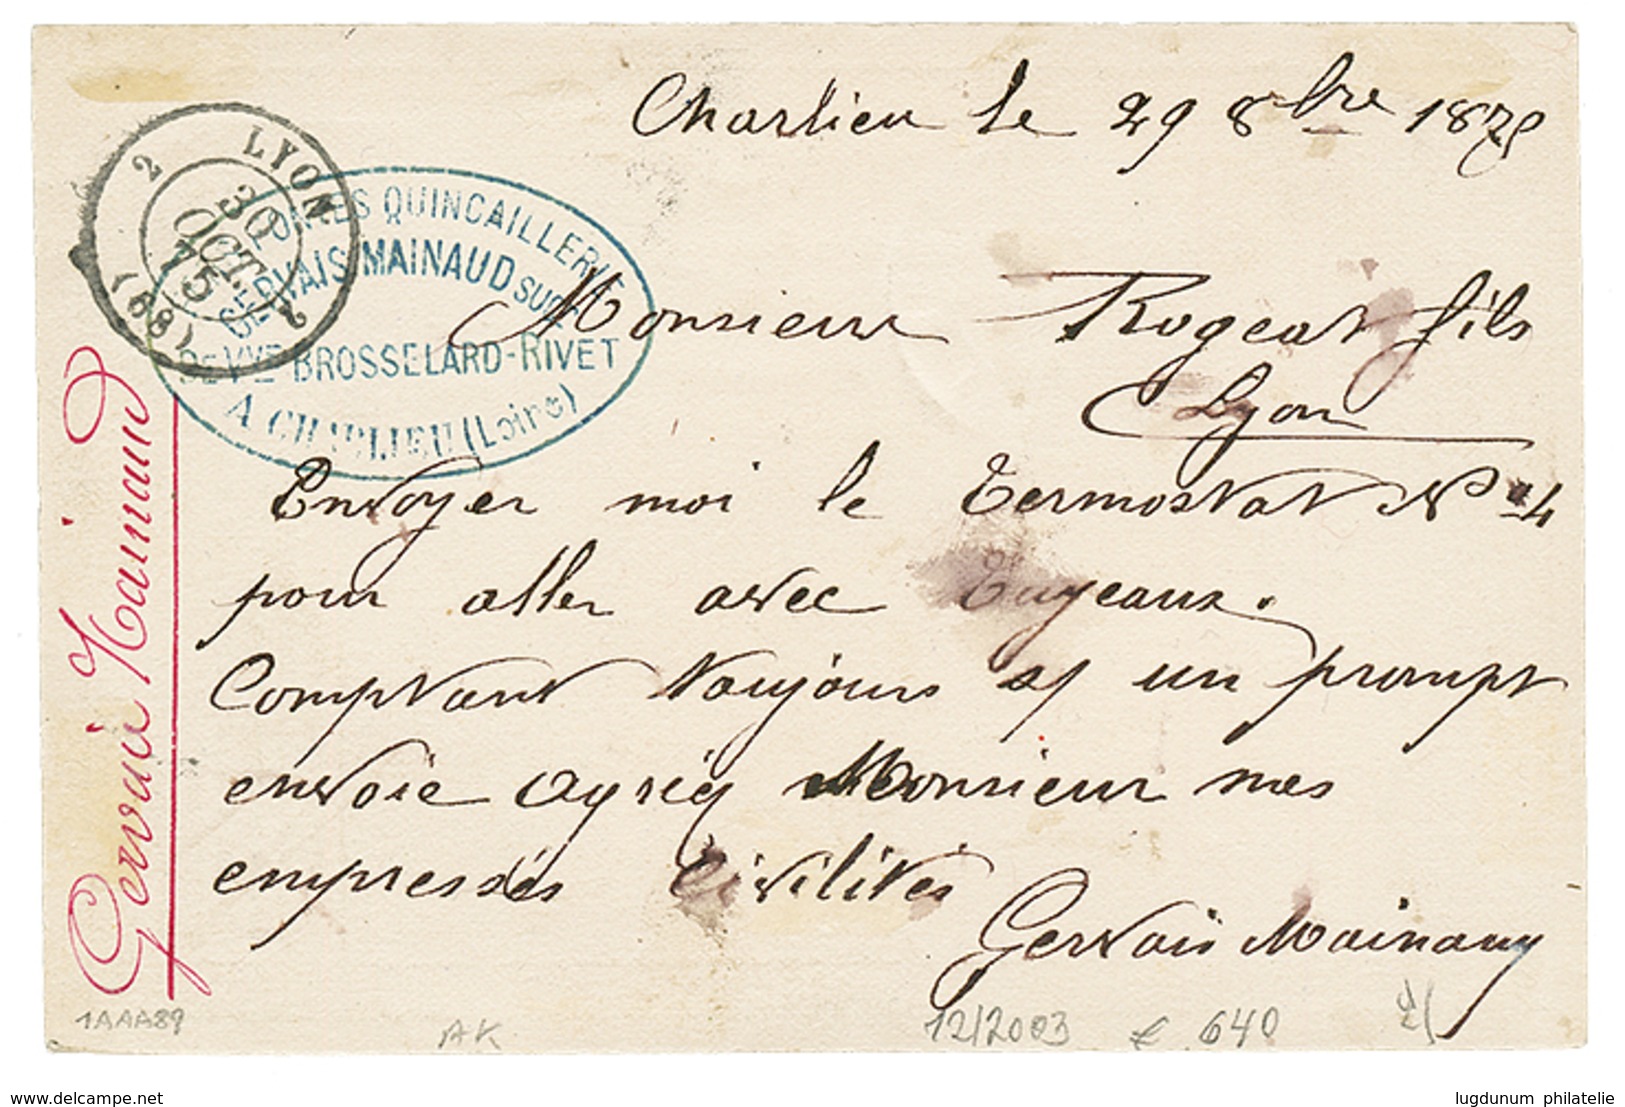 Charlieu le 29 8bre 1875
2 LYON 2
30
OCT.
75
(68)
QUINCAILLERIE
GERVAIS MAINAUD SUCR
DE VVE BROSSELARD-RIVET
A CHARLIEU (Loire)
Monsieur Rogeat fils
Lyon
Envoyer moi le termostat No 4
pour aller avec tuyeaux.
Comptant toujours s/ un prompt
envoie agréez Monsieur mes
empressés civilités
Gervais Mainaud
Gervais Mainaud
1AAA89
AK
12/2003
€ 640
lugdunum philatelie
www.delcampe.net